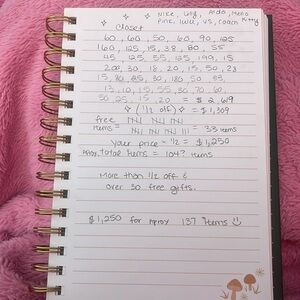 Nike, Ugg, Aldo, Hello
Pink, lulu, VS, Coach Kitty
Closet
60, 60, 50, 60, 90, 125
160, 125, 15, 38, 80, 55
45, 125, 55, 125, 199, 15
200, 30, 18, 20, 15, 50, 28
15, 80, 25, 30, 180, 50, 55
13, 10, 15, 55, 30, 70, 60
30, 25, 15, 20 = $2,619
(1/2 off) = $1,309
free
items = = 33 items
your price = 1/2 = $1,250
Total items = 104? items
more than 1/2 off &
over 30 free gifts.
$1,250 for 137 items